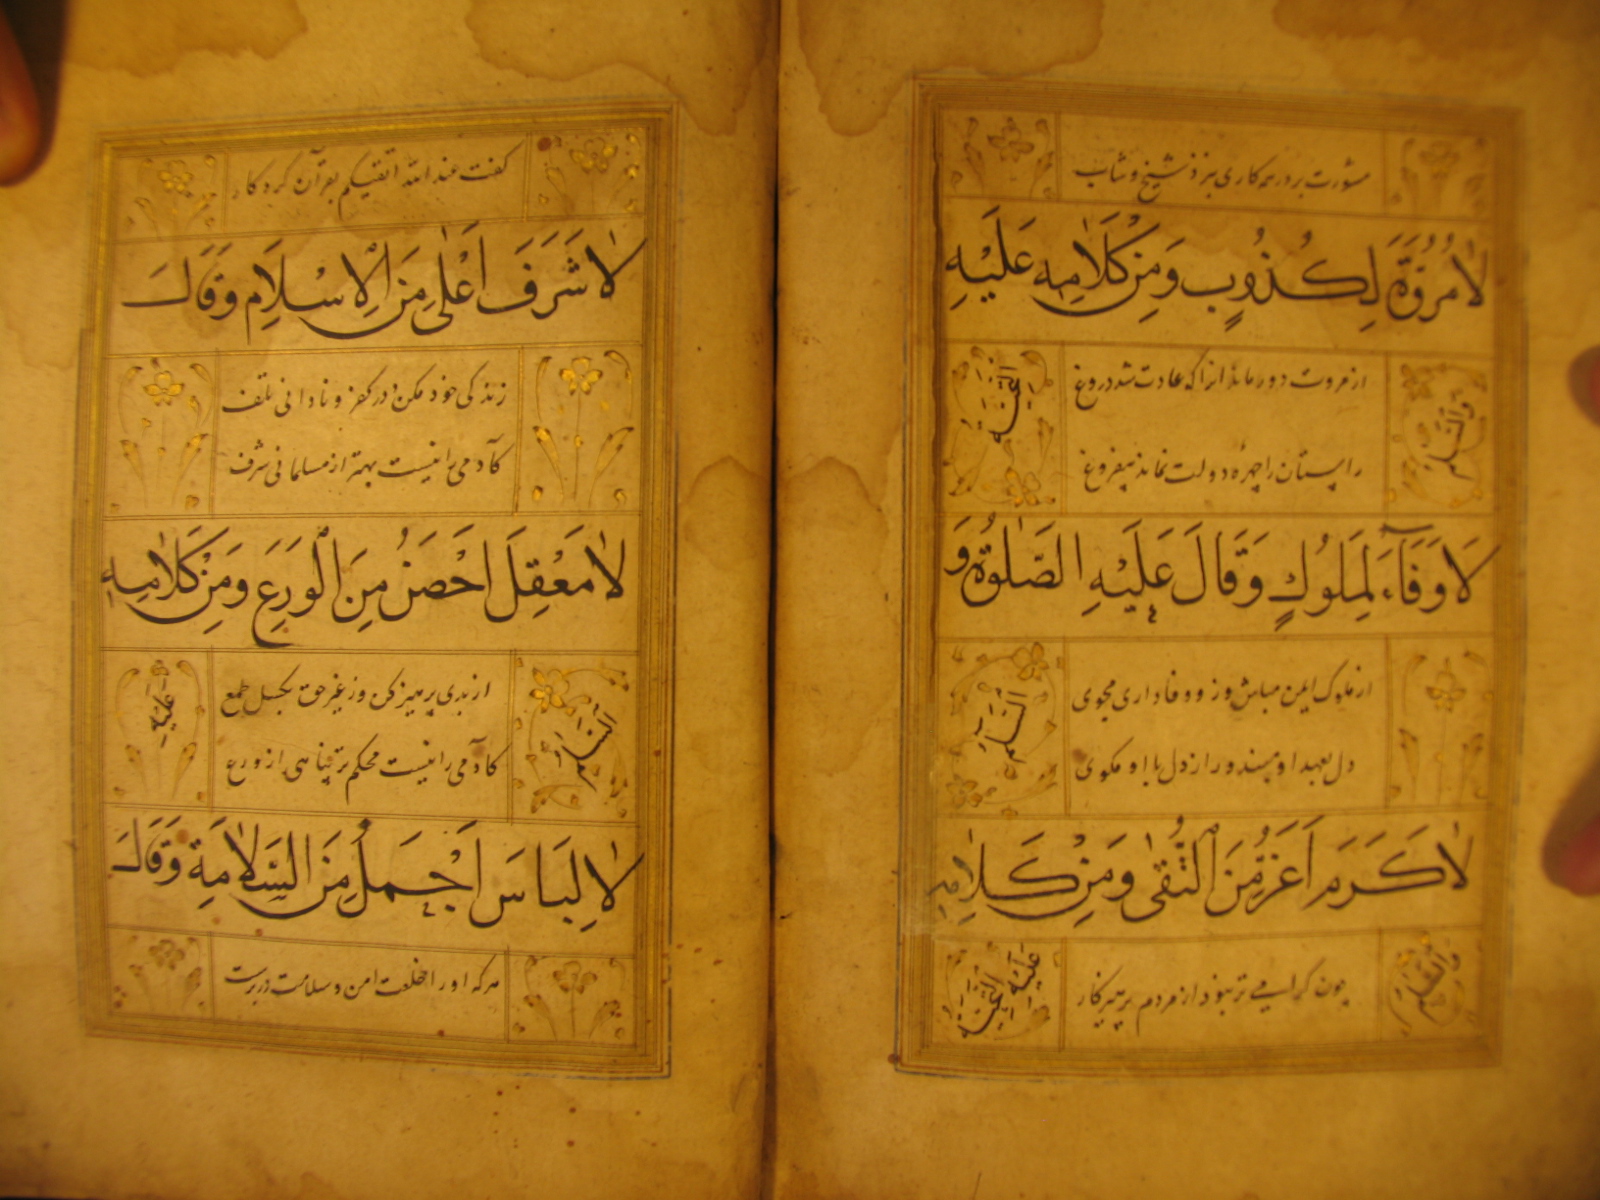 مشورت بر در هر کاری نزد شیخ و شاب
لَا مُرُوَّةَ لِكَذُوبٍ وَمِنْ كَلَامِهِ عَلَيْهِ
التَّحِيَّةُ
وَالسَّلَامُ
از مروت دور ماند آنرا که عادت شد دروغ
راستان را چهرهٔ دولت نماند بیفروغ
لَا وَفَاءَ لِمُلُوكٍ وَقَالَ عَلَيْهِ الصَّلٰوةُ وَ
السَّلَامُ
از ملوک ایمن مباش و زو وفاداری مجوی
دل بعهد او مبند و راز دل با او مگوی
لَا كَرَمَ اَعَزُّ مِنَ التُّقٰى وَمِنْ كَلَامِهِ
عَلَيْهِ التَّحِيَّةُ
وَالسَّلَامُ
چون گرامی تر نبود از مردم پرهیزکار
گفت عند الله اتقیکم بقرآن کردگار
لَا شَرَفَ اَعْلٰى مِنَ الْاِسْلَامِ وَقَالَ
زندگی خود مکن در کفر و نادانی تلف
کآدمی را نیست بهتر از مسلمانی شرف
لَا مَعْقِلَ اَحْصَنُ مِنَ الْوَرَعِ وَمِنْ كَلَامِهِ
عَلَيْهِ
السَّلَامُ
از بدی پرهیز کن وز غیر حق بگسل طمع
کآدمی را نیست محکم تر پناهی از ورع
لَا لِبَاسَ اَجْمَلُ مِنَ السَّلَامَةِ وَقَالَ
هر که او را خلعت امن و سلامت در برست